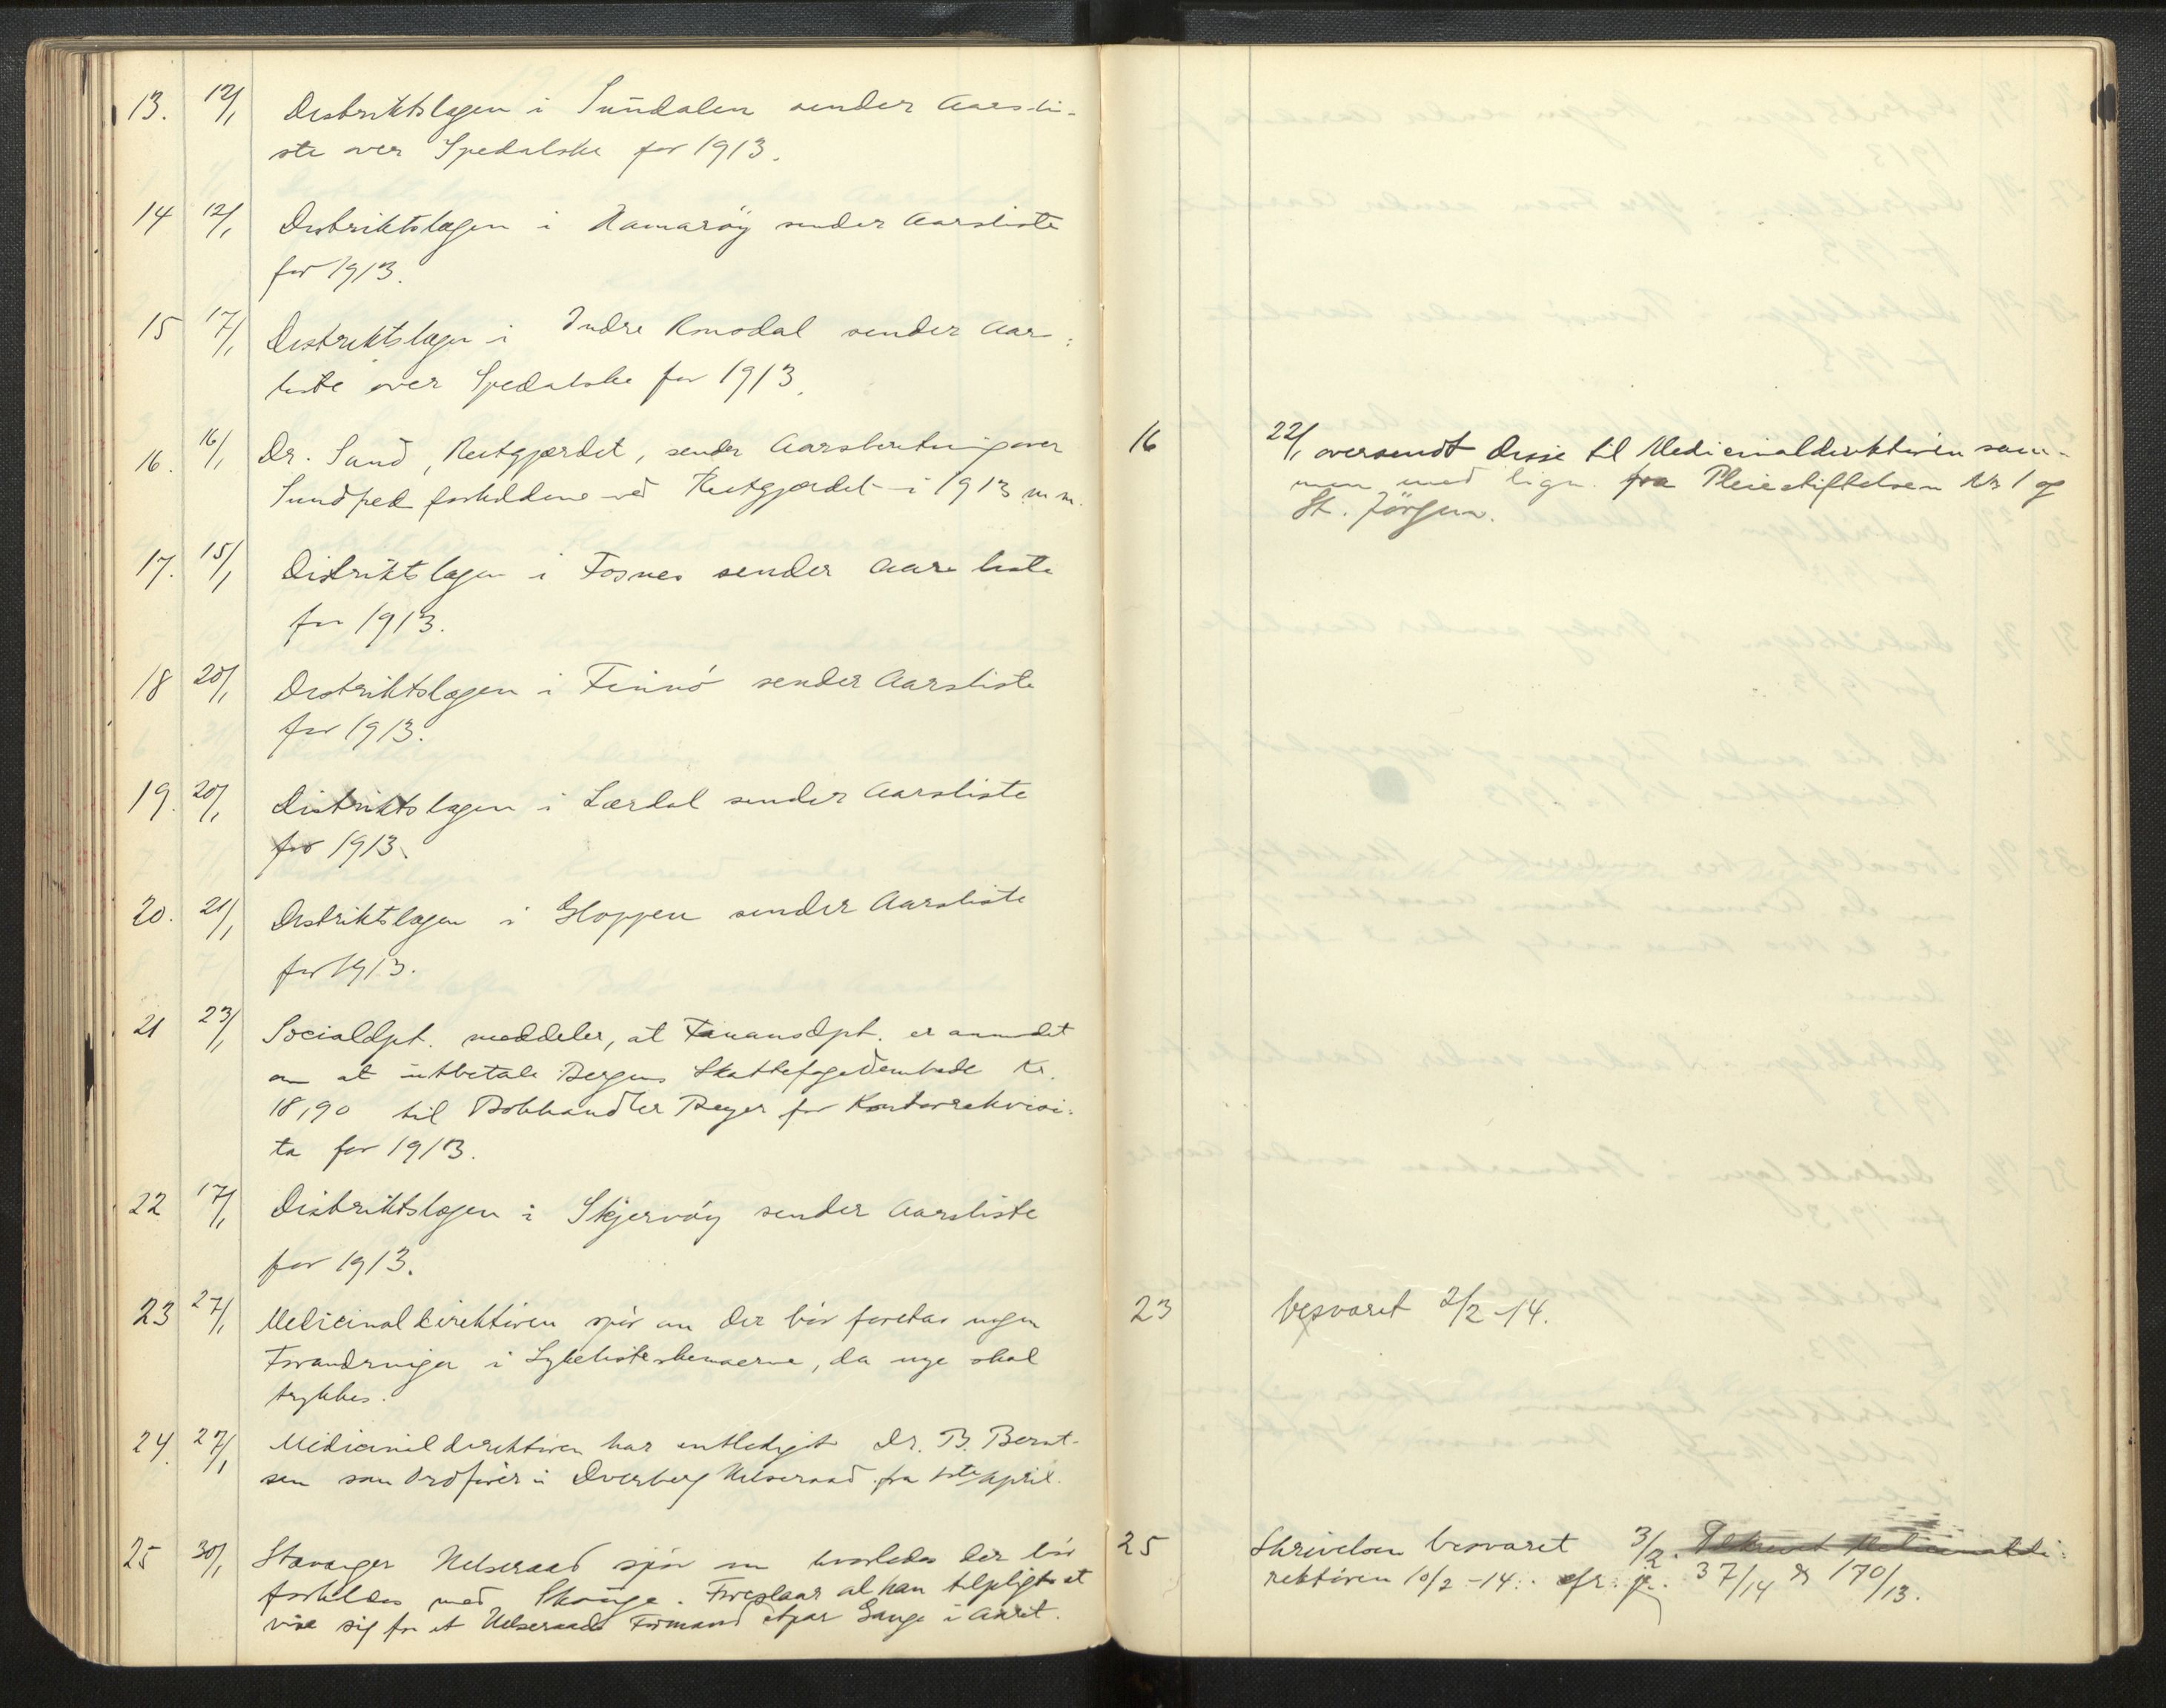 13. 12/1 Distriktslægen i Sundalen sender Aarsli-
ste over Spedalske for 1913.
14 12/1 Distriktslægen i Hamarøy sender Aarsliste
for 1913.
15 17/1 Distriktslægen i Indre Romsdal sender Aars-
liste over Spedalske for 1913.
16. 16/1 Dr. Sand, Reitgjærdet, sender Aarsberetning over
Sundhedsforholdene ved Reitgjærdet i 1913 m.m.
17. 15/1 Distriktslægen i Fosnes sender Aarsliste
for 1913.
18 20/1 Distriktslægen i Finnö sender Aarsliste
for 1913.
19. 20/1 Distriktslægen i Lærdal sender Aarsliste
for 1913.
20. 21/1 Distriktslægen i Gloppen sender Aarsliste
for 1913.
21 23/1 Socialdpt. meddeler, at Finansdpt. er anmodet
om at utbetale Bergens Skattefogedembede Kr.
18,90 til Bokhandler Beyer for Kontorrekvisi-
ta for 1913.
22 17/1 Distriktslægen i Skjervöy sender Aarsliste
for 1913.
23 27/1 Medicinaldirektören spör om der bör foretas nogen
Forandringer i Sykelisteskemaerne, da nye skal
trykkes.
24. 27/1 Medicinaldirektören har entlediget Dr. B. Bernt-
sen som Ordförer i Överberg Helseraad fra 1ste April.
25 30/1 Stavanger Helseraad spör om hvorledes der bör
forholdes med . Foreslaar at han tilpligtes at
vise sig for et Helseraads Formand et par Gange i Aaret.
16 22/1 oversendt disse til Medicinaldirektören sam-
men med lign. fra Pleiestiftelsen Nr 1 og
St. Jörgen.
23 besvaret 2/2 -14.
25 Skrivelsen besvaret 3/2. Tilskrevet Medicinaldi-
rektören 10/2 -14. cfr. j. 37/14 & 170/13.